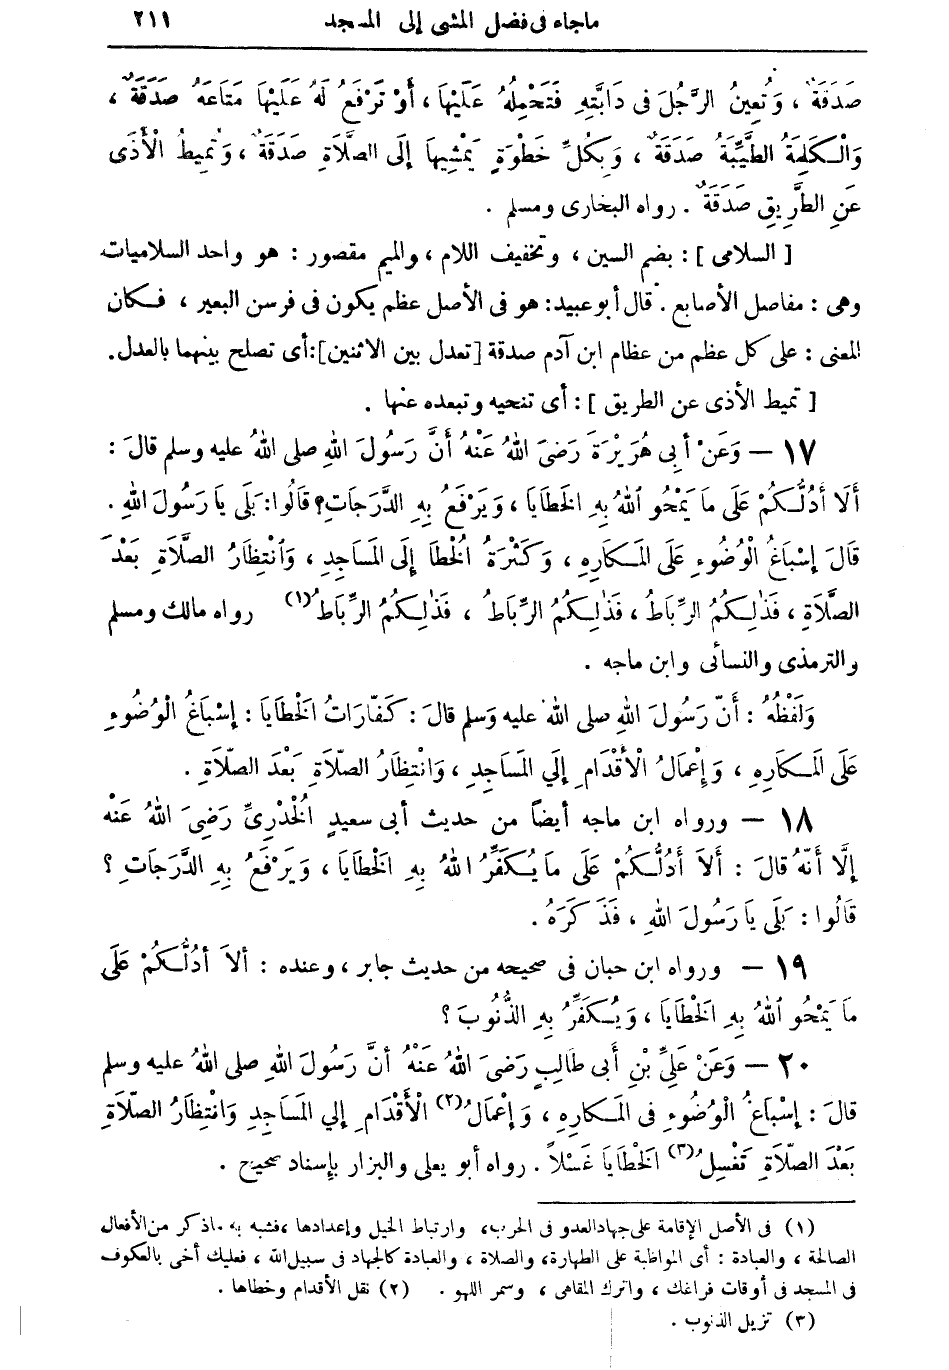 ماجاء فى فضل المشى إلى المسجد ٢١١
صَدَقَةٌ ، وَتُعِينُ الرَّجُلَ فى دَابَّتِهِ فَتَحْمِلُهُ عَلَيْهَا ، أَوْ تَرْفَعُ لَهُ عَلَيْهَا مَتَاعَهُ صَدَقَةٌ ،
وَالْكَلِمَةُ الطَّيِّبَةُ صَدَقَةٌ ، وَبِكُلِّ خَطْوَةٍ يَمْشِيهَا إلَى الصَّلَاةِ صَدَقَةٌ ، وَتُمِيطُ الْأَذَى
عَنِ الطَّرِيقِ صَدَقَةٌ . رواه البخارى ومسلم .
[ السلامى ] : بضم السين ، وتخفيف اللام ، والميم مقصور : هو واحد السلاميات
وهى : مفاصل الأصابع . قال أبو عبيد : هو فى الأصل عظم يكون فى فرسن البعير ، فكان
المعنى : على كل عظم من عظام ابن آدم صدقة [تعدل بين الاثنين] : أى تصلح بينهما بالعدل .
[ تميط الأذى عن الطريق ] : أى تنحيه وتبعده عنها .
١٧ — وَعَنْ أَبِى هُرَيْرَةَ رَضِىَ اللهُ عَنْهُ أَنَّ رَسُولَ اللهِ صلى اللهُ عليه وسلم قالَ :
أَلَا أَدُلُّكُمْ عَلَى مَا يَمْحُو اللهُ بِهِ الْخَطَايَا ، وَيَرْفَعُ بِهِ الدَّرَجَاتِ؟ قَالُوا: بَلَى يَا رَسُولَ اللهِ .
قَالَ إِسْبَاغُ الْوُضُوءِ عَلَى الْمَكَارِهِ ، وَكَثْرَةُ الْخُطَا إِلَى الْمَسَاجِدِ ، وَانْتِظَارُ الصَّلَاةِ بَعْدَ
الصَّلَاةِ ، فَذَلِكُمُ الرِّبَاطُ ، فَذَلِكُمُ الرِّبَاطُ ، فَذَلِكُمُ الرِّبَاطُ (١) رواه مالك ومسلم
والترمذى والنسائى وابن ماجه .
وَلَفْظُهُ : أَنَّ رَسُولَ اللهِ صلى اللهُ عليه وَسلم قالَ : كَفَّارَاتُ الْخَطَايَا : إِسْبَاغُ الْوُضُوءِ
عَلَى الْمَكَارِهِ ، وَإِعْمَالُ الْأَقْدَامِ إِلَي الْمَسَاجِدِ ، وَانْتِظَارُ الصَّلَاةِ بَعْدَ الصَّلَاةِ .
١٨ — ورواه ابن ماجه أيضاً من حديث أبى سعيدٍ الْخُدْرِىِّ رَضِىَ اللهُ عَنْهُ
إِلَّا أَنَّهُ قالَ : أَلَا أَدُلُّكُمْ عَلَى مَا يُكَفِّرُ اللهُ بِهِ الْخَطَايَا ، وَيَرْفَعُ بِهِ الدَّرَجَاتِ ؟
قَالُوا : بَلَى يَا رَسُولَ اللهِ ، فَذَكَرَهُ .
١٩ — ورواه ابن حبان فى صحيحه من حديث جابر ، وعنده : ألَا أدُلُّكُمْ عَلَى
مَا يَمْحُو اللهُ بِهِ الْخَطَايَا ، وَيُكَفِّرُ بِهِ الذُّنُوبَ ؟
٢٠ — وَعَنْ عَلِىِّ بْنِ أَبى طَالِبٍ رَضِىَ اللهُ عَنْهُ أنَّ رَسُولَ اللهِ صلى اللهُ عليه وسلم
قالَ : إِسْبَاغُ الْوُضُوءِ فى الْمَكَارِهِ ، وَإِعْمَالُ (٢) الْأَقْدَامِ إِلي الْمَسَاجِدِ وَانْتِظَارُ الصَّلَاةِ
بَعْدَ الصَّلَاةِ تَغْسِلُ (٣) الْخَطَايَا غَسْلاً . رواه أبو يعلى والبزار بإسناد صحيح .
(١) فى الأصل الإقامة على جهاد العدو فى الحرب، وارتباط الخيل وإعدادها ، فشبه به ماذكر من الأفعال
الصالحة ، والعبادة : أى المواظبة على الطهارة، والصلاة ، والعبادة كالجهاد فى سبيل الله ، فعليك أخى بالعكوف
فى المسجد فى أوقات فراغك ، واترك المقاهى ، وسمر اللهو . (٢) نقل الأقدام وخطاها .
(٣) تزيل الذنوب .